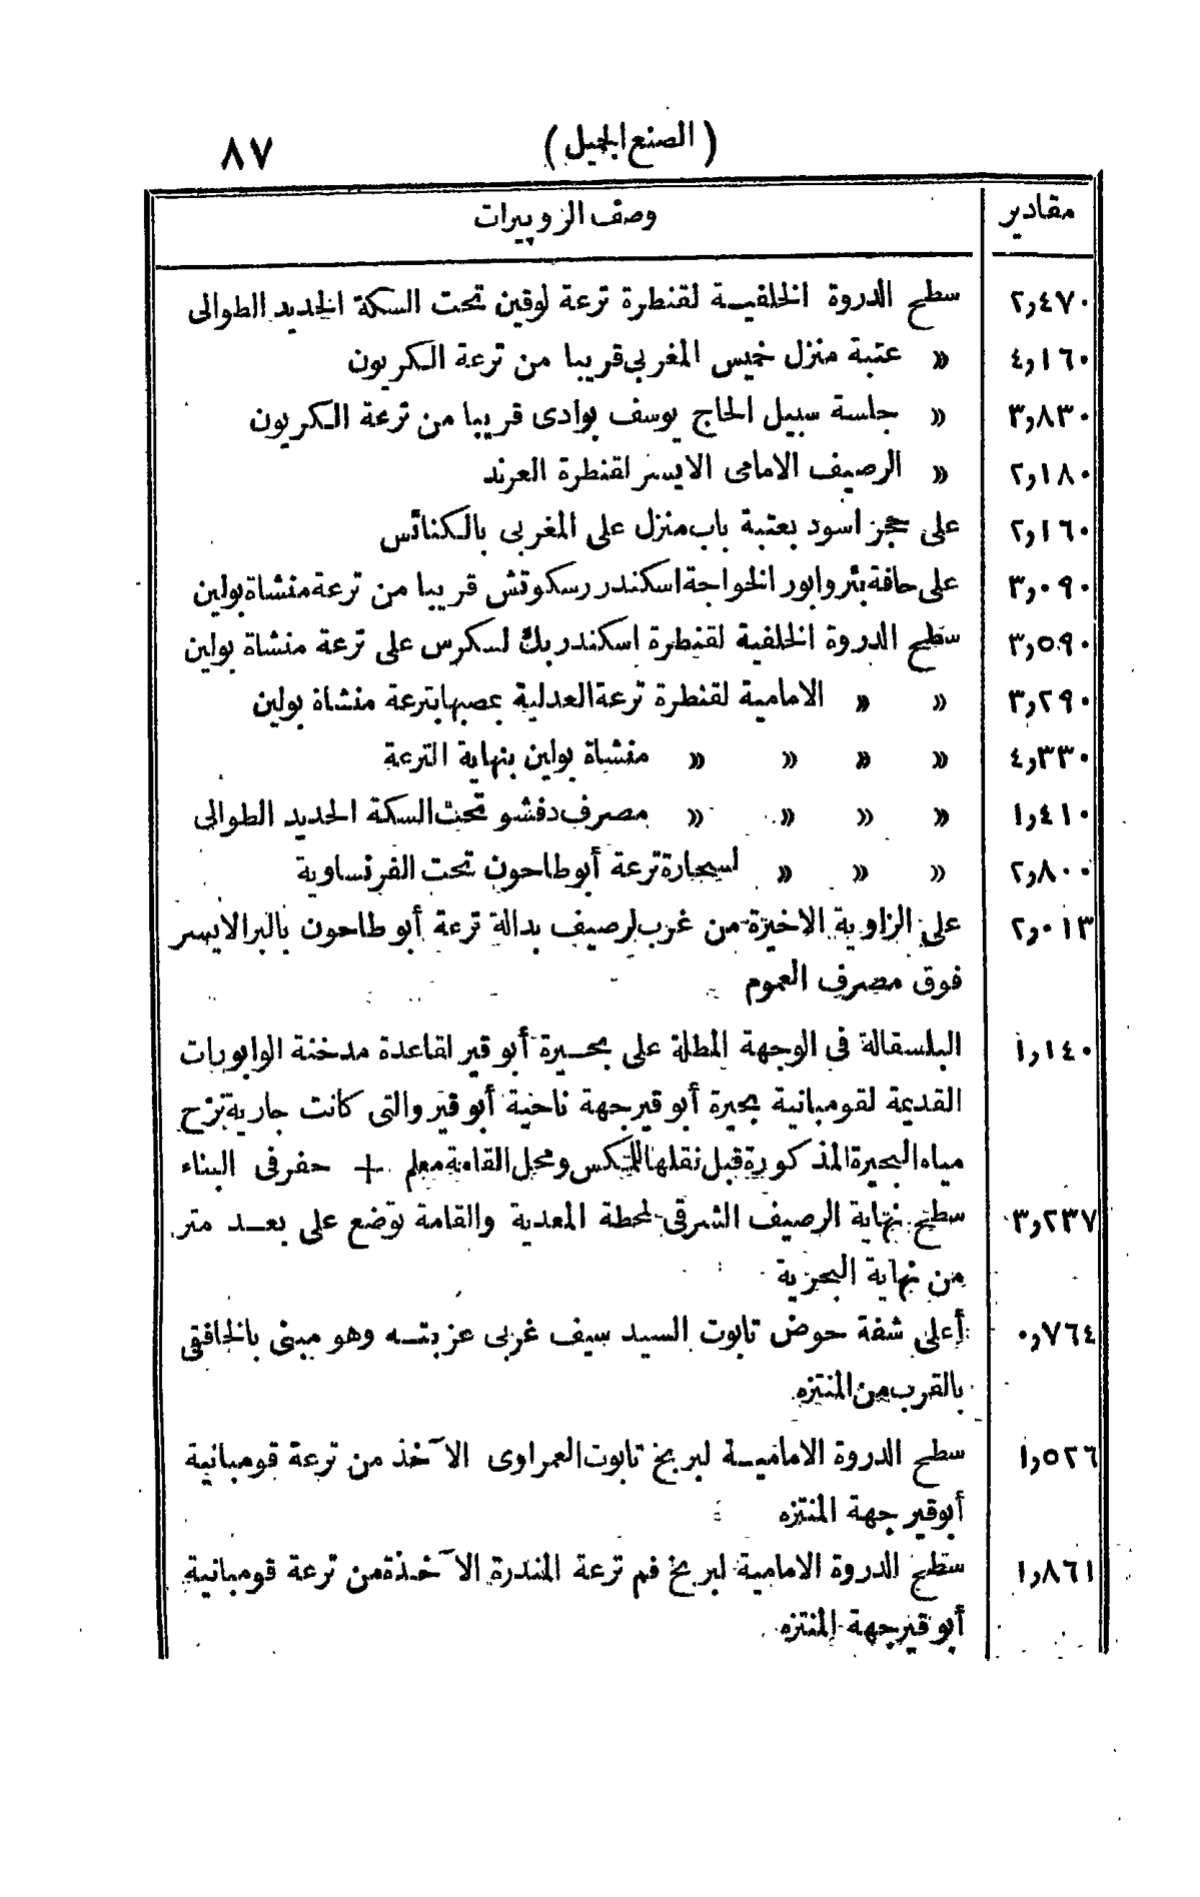 (الصنع الجميل) ٨٧
مقادير وصف الروبيرات
٢٫٤٧٠ سطح الدروة الخلفية لقنطرة ترعة لوقين تحت السكة الحديد الطوالى
٤٫١٦٠ » عتبة منزل خميس المغربى قريبا من ترعة الكريون
٣٫٨٣٠ » جلسة سبيل الحاج يوسف بوادى قريبا من ترعة الكريون
٢٫١٨٠ » الرصيف الامامى الايسر لقنطرة العرند
٢٫١٦٠ على حجر اسود بعتبة باب منزل على المغربى بالكنائس
٣٫٠٩٠ على حافة بئر وابور الخواجة اسكندر رسكوتش قريبا من ترعة منشاة بولين
٣٫٥٩٠ سطح الدروة الخلفية لقنطرة اسكندر بك لسكرس على ترعة منشاة بولين
٣٫٢٩٠ » » الامامية لقنطرة ترعة العدلية بمصبها بترعة منشاة بولين
٤٫٣٣٠ » » » » منشاة بولين بنهاية الترعة
١٫٤١٠ » » » » مصرف دفشو تحت السكة الحديد الطوالى
٢٫٨٠٠ » » » لسحارة ترعة أبو طاحون تحت الفرنساوية
٢٫٠١٣ على الزاوية الاخيرة من غرب لرصيف بدالة ترعة أبو طاحون بالبر الايسر
فوق مصرف العموم
١٫١٤٠ البلسقالة فى الوجهة المطلة على بحيرة أبو قير لقاعدة مدخنة الوابورات
القديمة لقومبانية بحيرة أبو قير جهة ناحية أبو قير والتى كانت جارية نزح
مياه البحيرة المذكورة قبل نقلها للمكس ومحل القامة معلم + حفر فى البناء
٣٫٢٣٧ سطح نهاية الرصيف الشرقى لمحطة المعدية والقامة توضع على بعد متر
من نهاية البحرية
٠٫٧٦٤ أعلى شفة حوض تابوت السيد سيف غربى عزبته وهو مبنى بالخافقى
بالقرب من المنتزه
١٫٥٢٦ سطح الدروة الامامية لبربخ تابوت العمراوى الآخذ من ترعة قومبانية
أبو قير جهة المنتزه
١٫٨٦١ سطح الدروة الامامية لبربخ فم ترعة المندرة الآخذة من ترعة قومبانية
أبو قير جهة المنتزه